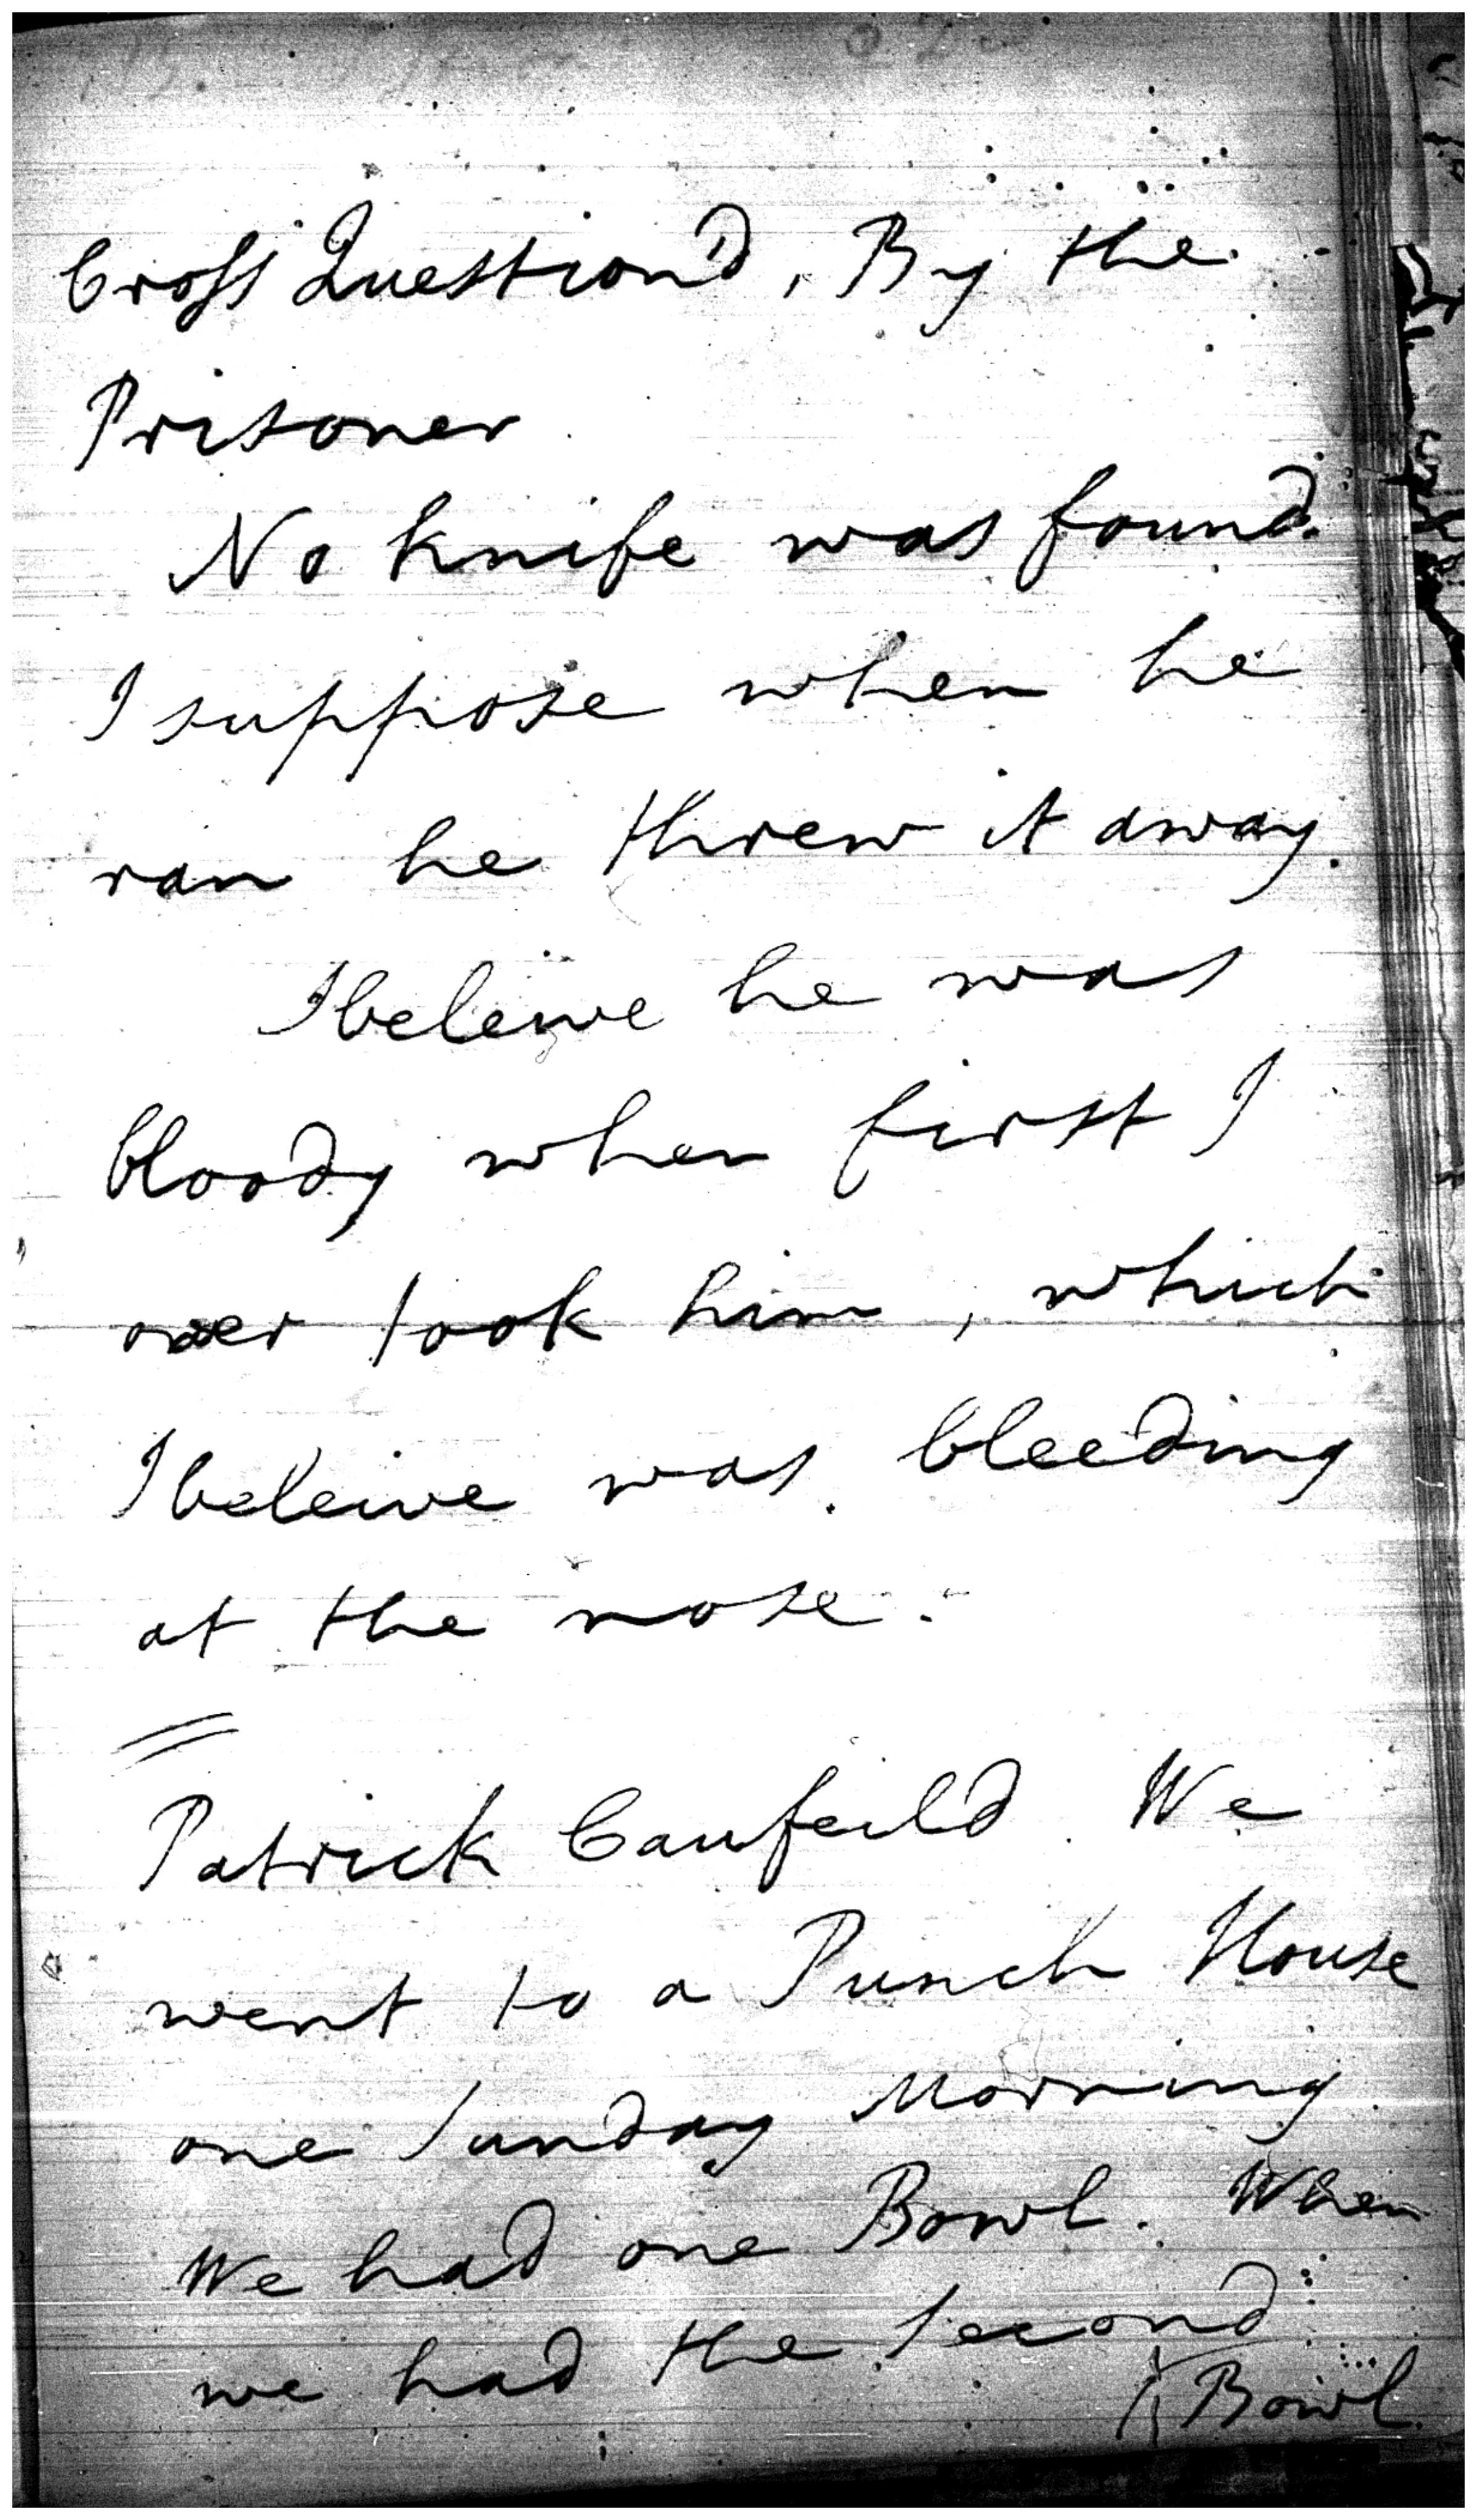 Cross Question'd, By the
Prisoner
No knife was found.
I suppose when he
ran he threw it away.
I beleive he was
bloody when first I
over took him, which
I beleive was bleeding
at the nose.
Patrick Caufeild. We
went to a Punch House
one Sunday Morning
We had one Bowl. When
we had the Second
Bowl